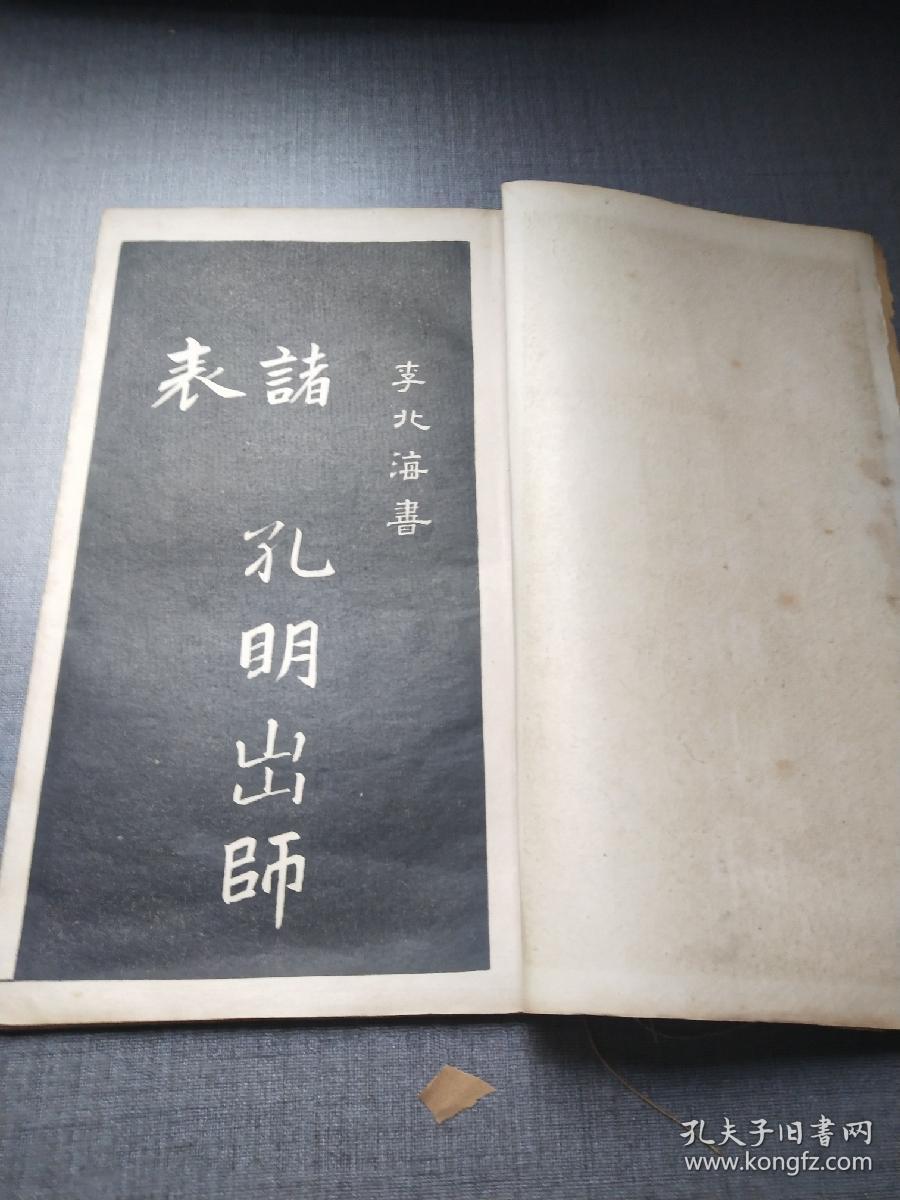 李北海書
諸孔明出師
表
孔夫子旧書网
www.kongfz.com